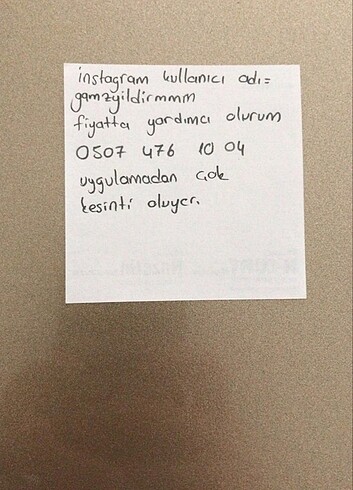 instagram kullanıcı adı=
gamzyildirmmm
fiyatta yardımcı olurum
0507 476 10 04
uygulamadan çok
kesinti oluyor.